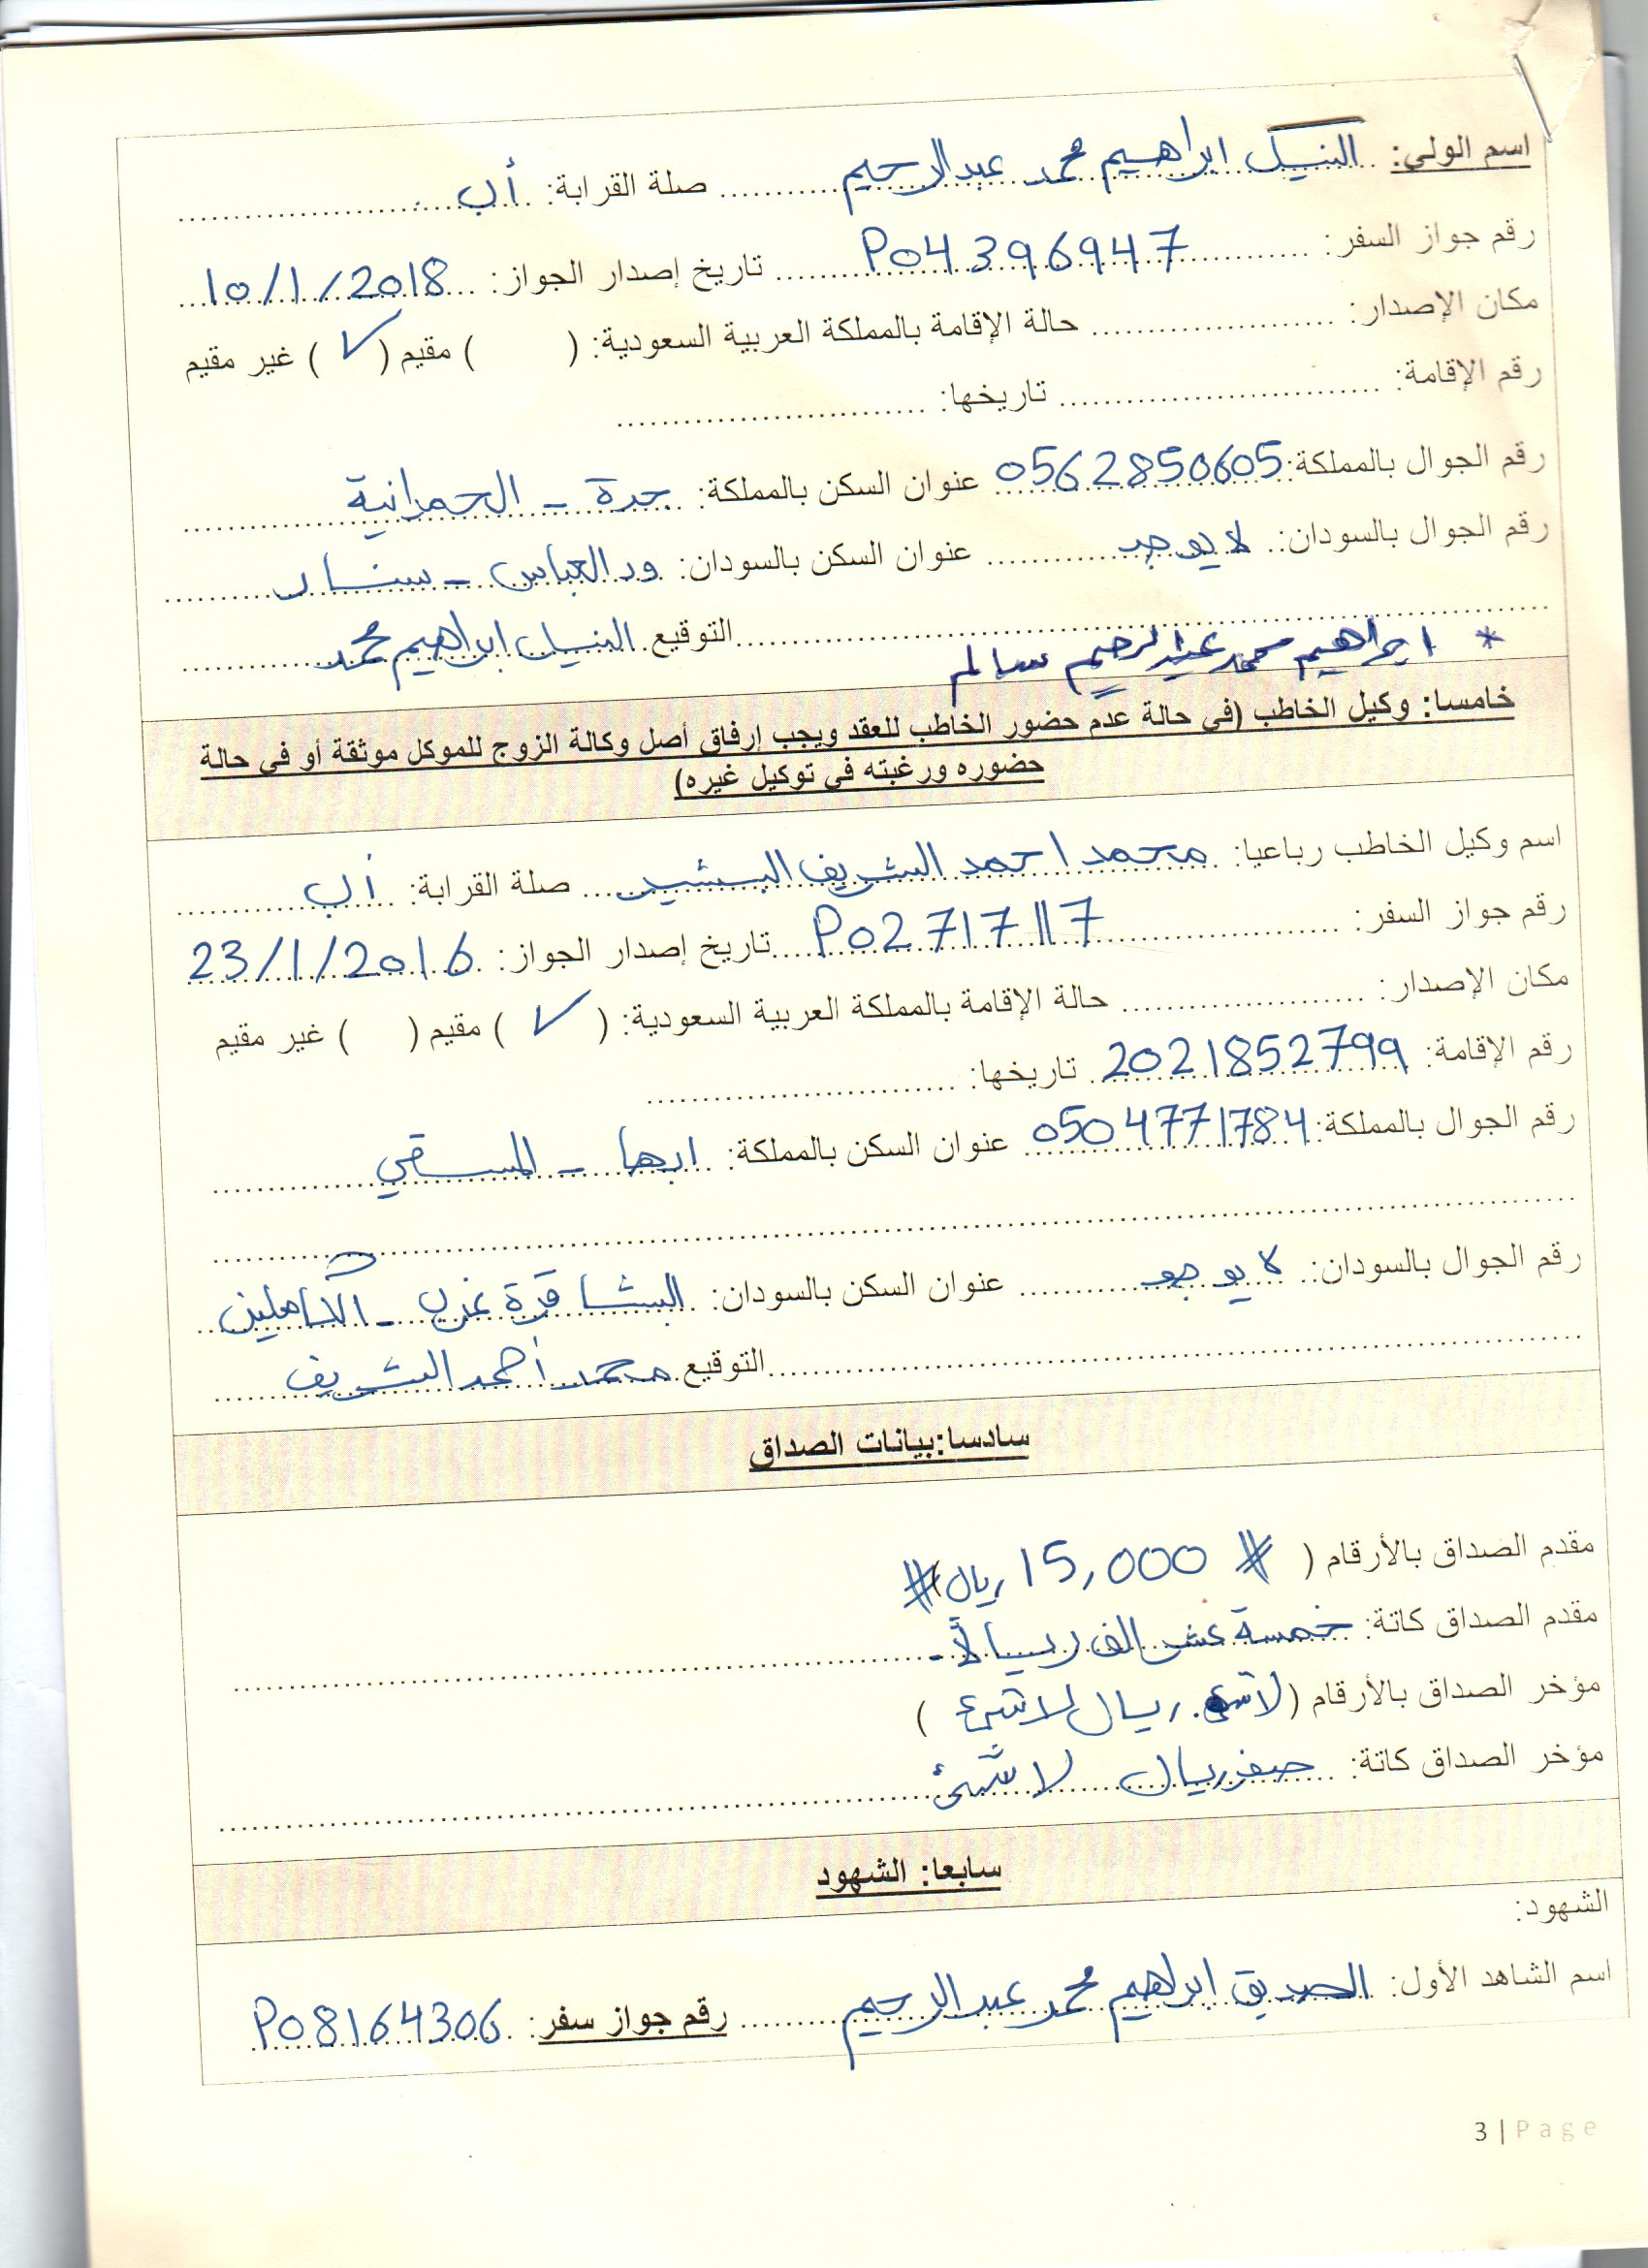 اسم الولي: النيل ابراهيم محمد عبدالرحيم صلة القرابة: أب
رقم جواز السفر: P04396947 تاريخ إصدار الجواز: 10/1/2018
مكان الإصدار: حالة الإقامة بالمملكة العربية السعودية: ( ) مقيم (✓) غير مقيم
رقم الإقامة: تاريخها:
رقم الجوال بالمملكة: 0562850605 عنوان السكن بالمملكة: جدة - الحمدانية
رقم الجوال بالسودان: لا يوجد عنوان السكن بالسودان: ود العباس - سنار
* ابراهيم محمد عبدالرحيم سالم التوقيع النيل ابراهيم محمد
خامسا: وكيل الخاطب (في حالة عدم حضور الخاطب للعقد ويجب إرفاق أصل وكالة الزوج للموكل موثقة أو في حالة
حضوره ورغبته في توكيل غيره)
اسم وكيل الخاطب رباعيا: محمد احمد الشريف البشير صلة القرابة: أب
رقم جواز السفر: P02717117 تاريخ إصدار الجواز: 23/1/2016
مكان الإصدار: حالة الإقامة بالمملكة العربية السعودية: (✓) مقيم ( ) غير مقيم
رقم الإقامة: 2021852799 تاريخها:
رقم الجوال بالمملكة: 0504771784 عنوان السكن بالمملكة: ابها - المسقي
رقم الجوال بالسودان: لا يوجد عنوان السكن بالسودان: البشاقرة غرب - الكاملين
التوقيع محمد أحمد الشريف
سادسا:بيانات الصداق
مقدم الصداق بالأرقام ( # 15,000 ريال #)
مقدم الصداق كاتة: خمسة عشر الف ريالاً -
مؤخر الصداق بالأرقام (لا شئ. ريال لا شئ )
مؤخر الصداق كاتة: صفر ريال لا شئ
سابعا: الشهود
الشهود:
اسم الشاهد الأول: الصديق ابراهيم محمد عبد الرحيم رقم جواز سفر: P08164306
3 | Page